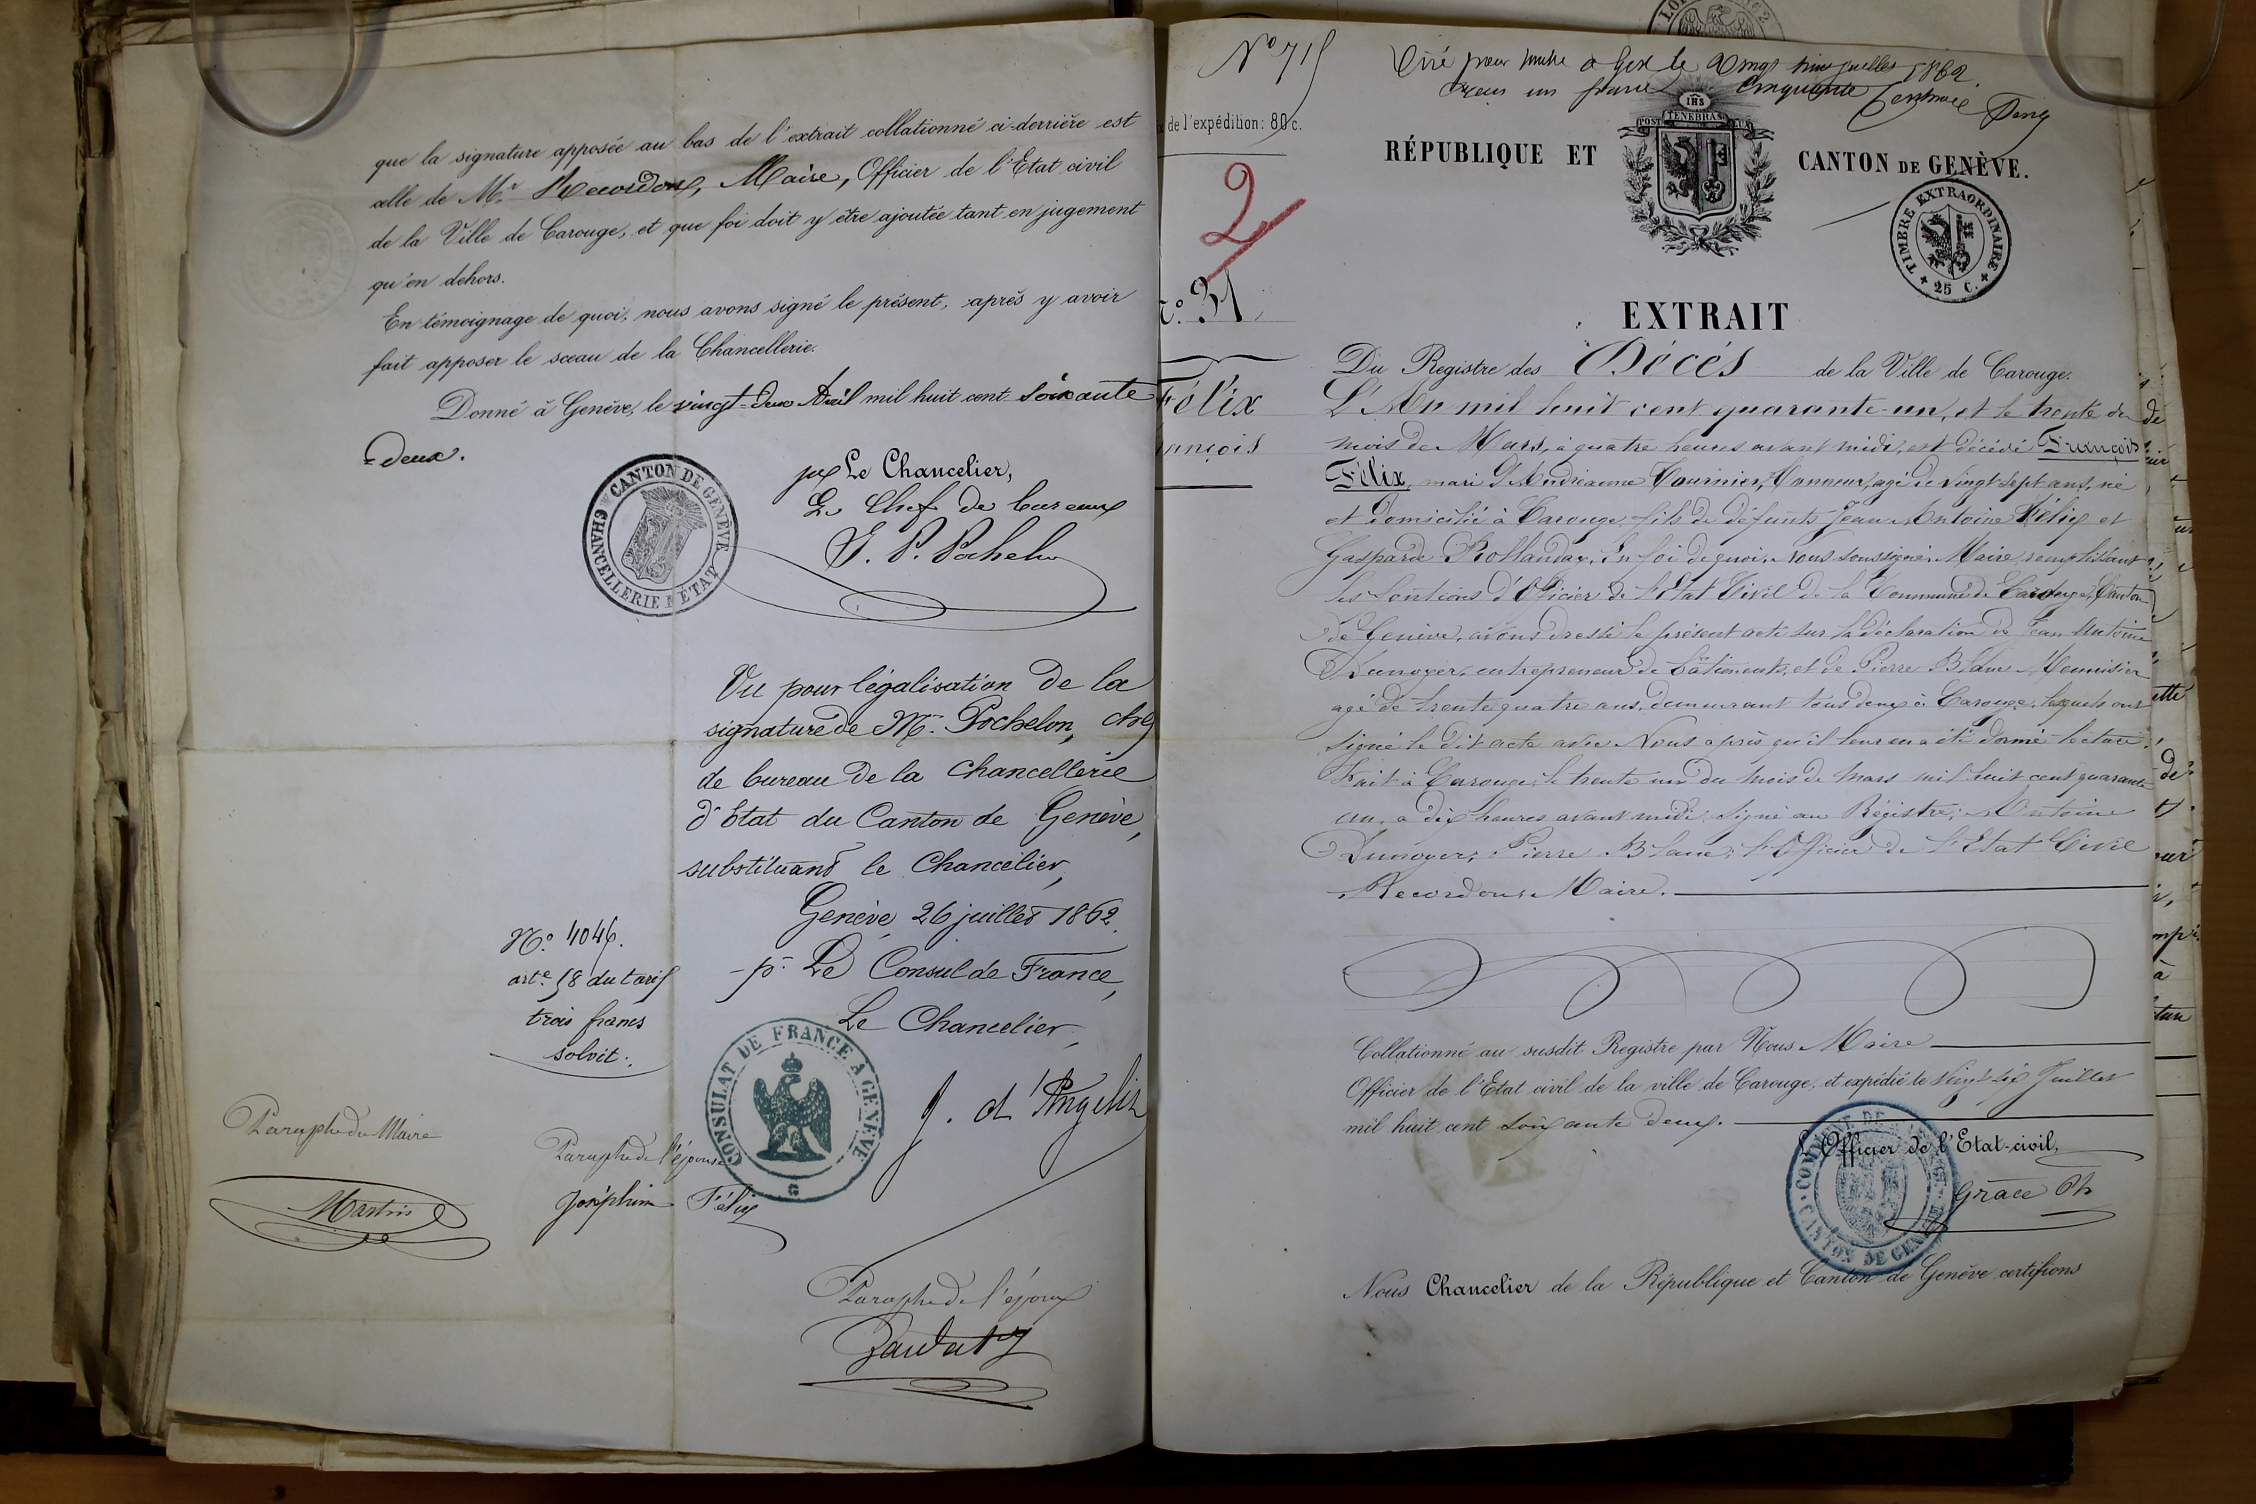 que la signature apposée au bas de l'extrait collationné ci-derrière est
celle de Mr. Recordon, Maire, Officier de l'Etat civil
de la Ville de Carouge, et que foi doit y être ajoutée tant en jugement
qu'en dehors.
En témoignage de quoi, nous avons signé le présent, après y avoir
fait apposer le sceau de la Chancellerie.
Donné à Genève, le vingt-deux Avril mil huit cent soixante
=deux.
CANTON DE GENÈVE
CHANCELLERIE D'ETAT
Le Chancelier,
Le Chef de bureau
Vu pour légalisation de la
signature de Mr. Pochelon, chef
de bureau de la Chancellerie
d'Etat du Canton de Genève,
substituant le Chancelier,
Genève, 26 juillet 1862.
p. Le Consul de France,
Le Chancelier,
No. 4046.
arte. 58 du tarif
trois francs
solvit.
CONSULAT DE FRANCE À GENÈVE
J. d'Angelis
Paraphe du Maire
Paraphe de l'épouse
Joséphine Félix
Paraphe de l'époux
No 715
de l'expédition: 80 c.
2
No. 31
Félix
François
Visé pour timbre à Gex le vingt juillet 1862.
Reçu un franc cinquante centimes
IHS
POST TENEBRAS LUX
RÉPUBLIQUE ET CANTON DE GENÈVE.
TIMBRE EXTRAORDINAIRE
25 C.
EXTRAIT
Du Registre des Décès de la Ville de Carouge.
L'An mil huit cent quarante-un, et le trente du
mois de Mars, à quatre heures avant midi, est décédé François
Félix, mari d'Andréanne Vournier, Tanneur, agé de vingt sept ans, né
et domicilié à Carouge, fils de défunts Jean Antoine Félix et
Gasparde Rollandax. En foi de quoi, nous soussigné, Maire, remplissant
les fonctions d'Officier de l'Etat Civil de la Commune de Carouge, Canton
de Genève, avons dressé le présent acte sur la déclaration de Jean Antoine
Dunoyer, entrepreneur de bâtiments, et de Pierre Blanc Menuisier
agé de trente quatre ans, demeurant tous deux à Carouge, lesquels ont
signé le dit acte avec Nous après qu'il leur en a été donné lecture.
Fait à Carouge, le trente un du mois de Mars mil huit cent quarante
un, à dix heures avant midi. Signé au Régistre: Antoine
Dunoyer, Pierre Blanc, l'Officier de l'Etat Civil
Recordon, Maire.
Collationné au susdit Registre par Nous Maire
Officier de l'Etat civil de la ville de Carouge, et expédié le vingt six Juillet
mil huit cent soixante deux.
L'Officier de l'Etat-civil,
CANTON DE GENÈVE
Nous Chancelier de la République et Canton de Genève certifions